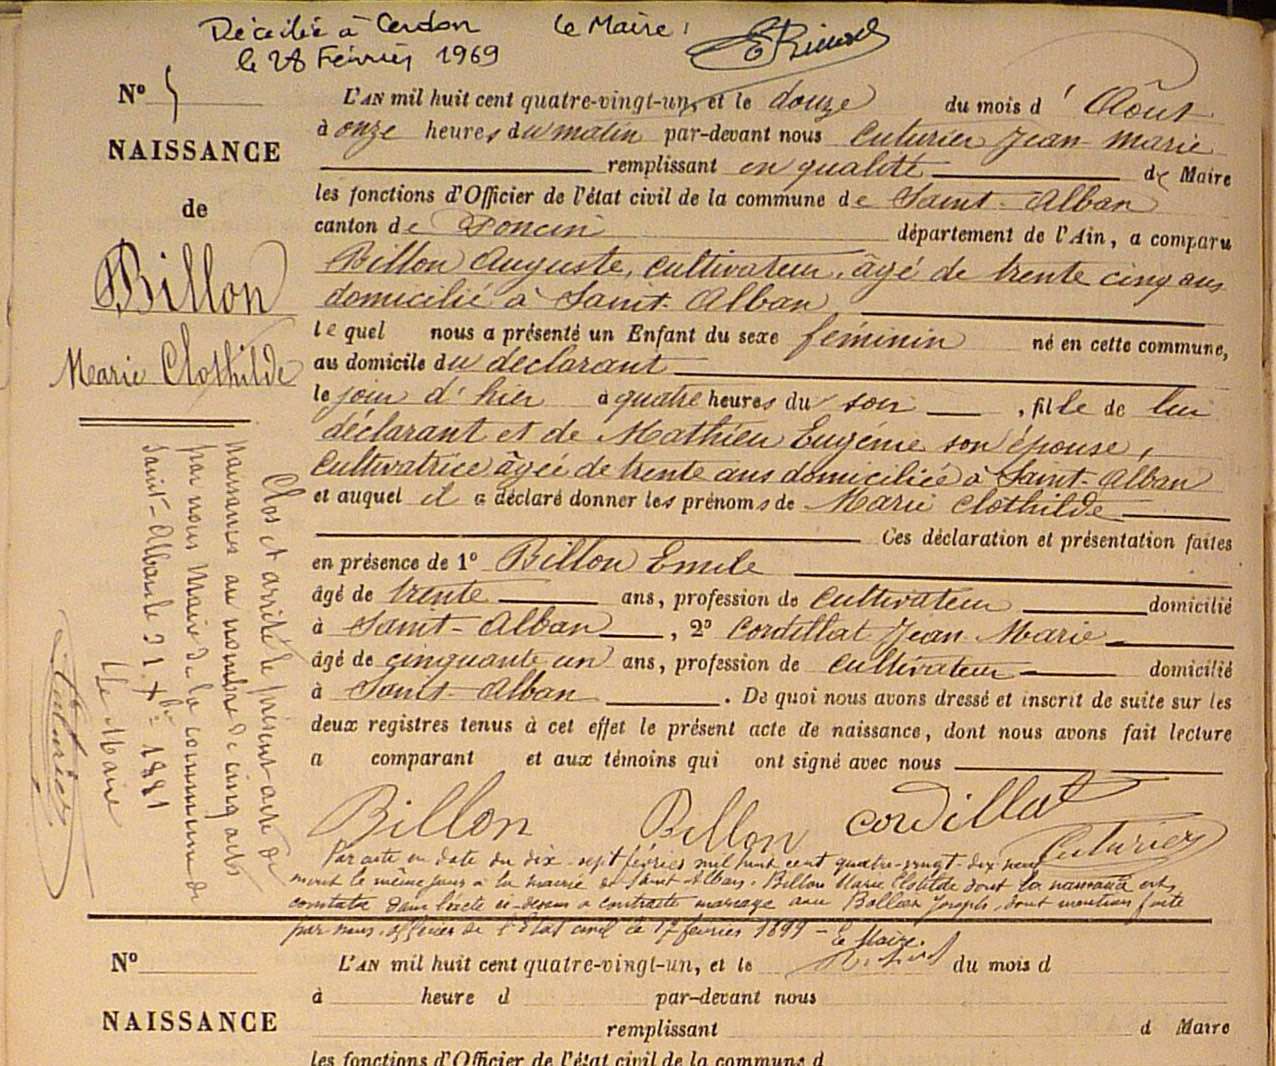 Décédée à Cerdon Le Maire :
le 28 Février 1969
N° 5
NAISSANCE
de
Billon
Marie Clothilde
L'AN mil huit cent quatre-vingt-un, et le douze du mois d' Août
à onze heures du matin par-devant nous Cuturier Jean Marie
remplissant en qualité de Maire
les fonctions d'Officier de l'état civil de la commune de Saint-Alban
canton de Poncin département de l'Ain, a comparu
Billon Auguste, cultivateur, âgé de trente cinq ans
domicilié à Saint-Alban
lequel nous a présenté un Enfant du sexe féminin né en cette commune,
au domicile du déclarant
le jour d'hier à quatre heures du soir, fille de lui
déclarant et de Mathieu Eugénie son épouse,
cultivatrice âgée de trente ans domiciliée à Saint-Alban
et auquel il a déclaré donner les prénoms de Marie Clothilde
Ces déclaration et présentation faites
en présence de 1° Billon Emile
âgé de trente ans, profession de cultivateur domicilié
à Saint-Alban, 2° Cordillat Jean Marie
âgé de cinquante un ans, profession de cultivateur domicilié
à Saint-Alban. De quoi nous avons dressé et inscrit de suite sur les
deux registres tenus à cet effet le présent acte de naissance, dont nous avons fait lecture
a comparant et aux témoins qui ont signé avec nous
Billon Billon Cordillat
Cuturier
Par acte en date du dix-sept février mil huit cent quatre-vingt-dix neuf
inscrit le même jour à la mairie de Saint-Alban, Billon Marie Clotilde dont la naissance est
constatée dans l'acte ci-dessus a contracté mariage avec Joseph, dont mention faite
par nous, officier de l'Etat civil le 17 février 1899 - Le Maire.
Clos et arrêté le présent acte de
naissance au nombre de cinq actes
par nous Maire de la commune de
Saint-Alban le 31 Xbre 1881
Le Maire
Cuturier
N°
NAISSANCE
L'AN mil huit cent quatre-vingt-un, et le du mois d
à heure d par-devant nous
remplissant d Maire
les fonctions d'Officier de l'état civil de la commune d